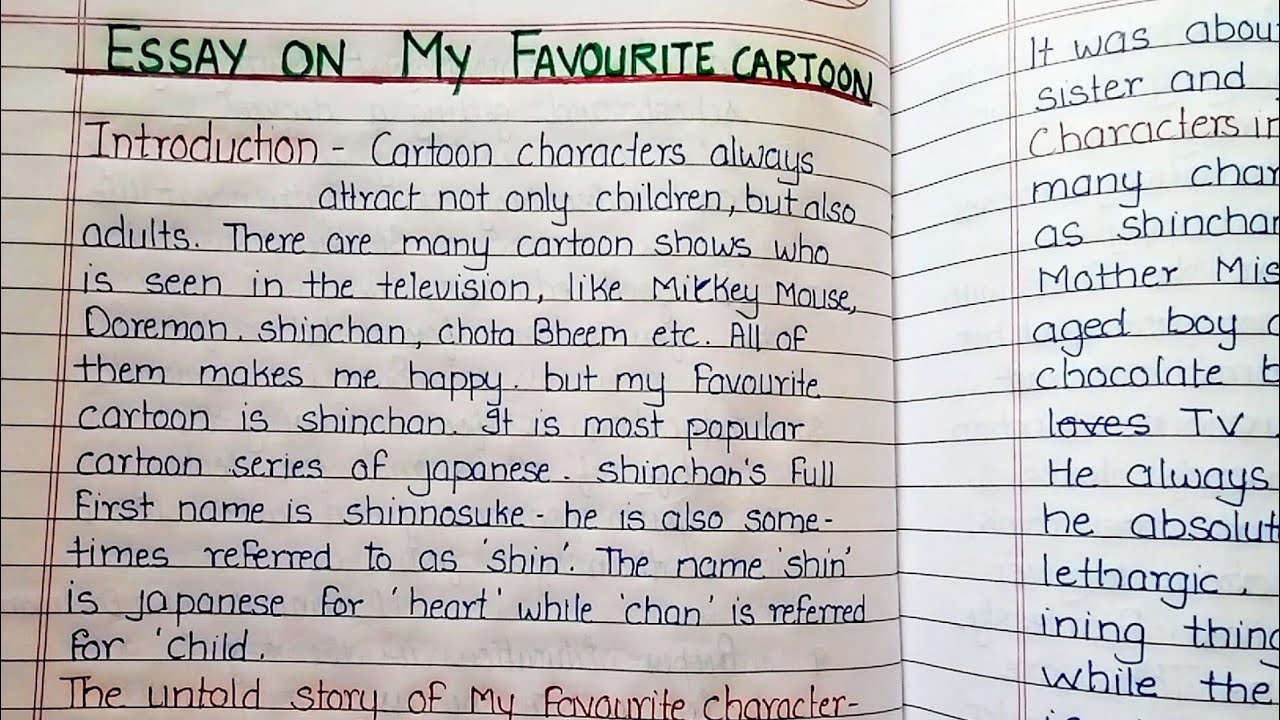 ESSAY ON MY FAVOURITE CARTOON
Introduction - Cartoon characters always
attract not only children, but also
adults. There are many cartoon shows who
is seen in the television, like Mickey Mouse,
Doremon, shinchan, chota Bheem etc. All of
them makes me happy. but my Favourite
cartoon is shinchan. It is most popular
cartoon series of japanese. shinchan's Full
First name is shinnosuke - he is also some-
times referred to as 'shin'. The name 'shin'
is japanese for 'heart' while 'chan' is referred
for 'child.
The untold story of My Favourite character-
It was abou
sister and
Characters in
many char
as shinchan
Mother Mis
aged boy
chocolate b
loves TV
He always
he absolut
lethargic.
ining thing
while the